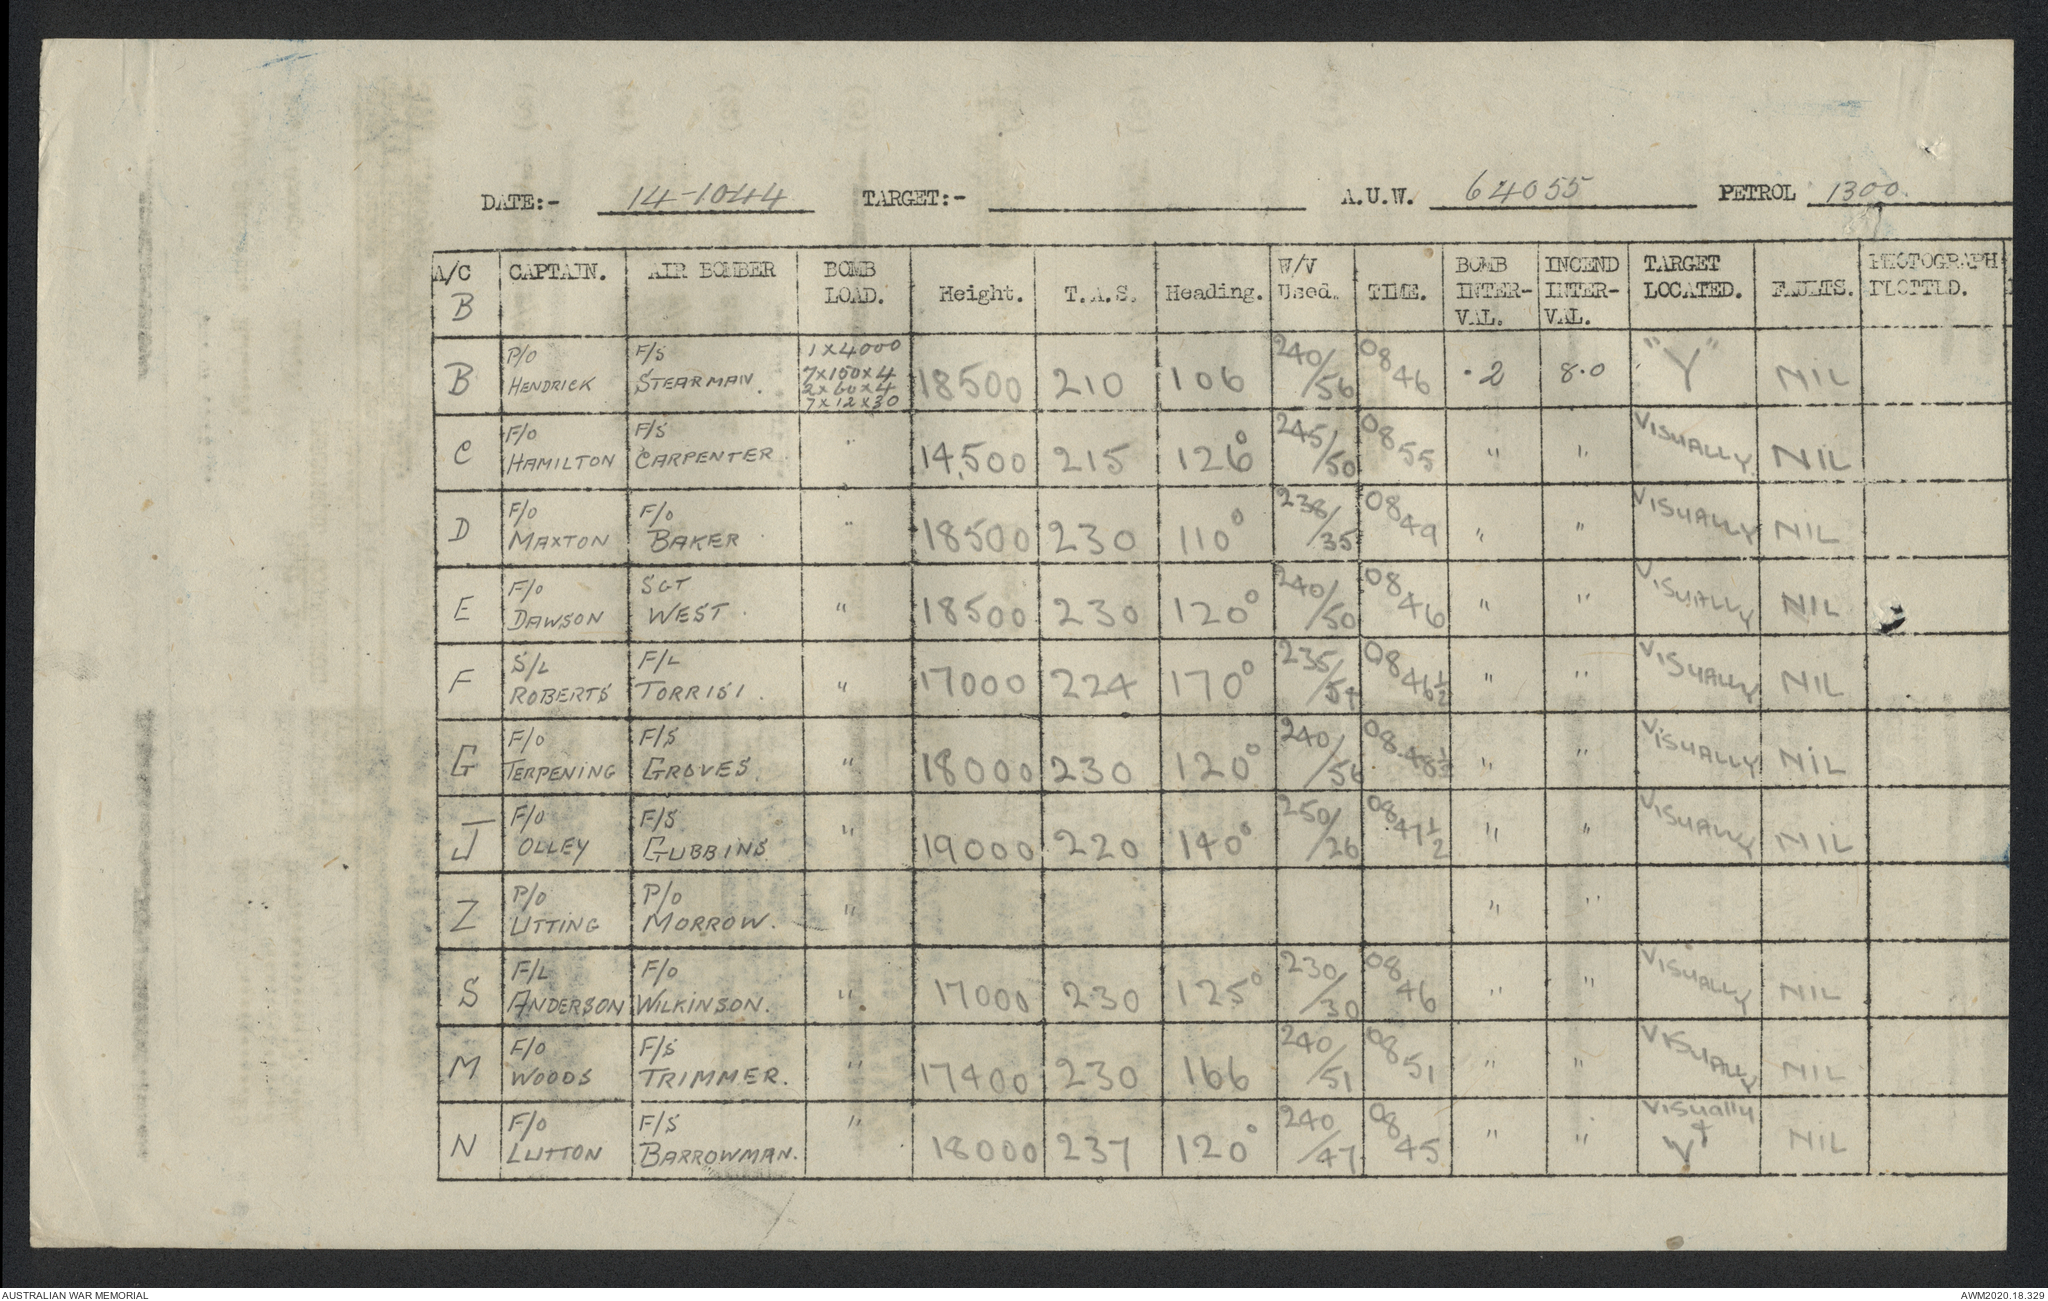 DATE:- 14-1044 TARGET:- A.U.W. 64055 PETROL 1300
A/C CAPTAIN. AIR BOMBER BOMB LOAD. Height. T.A.S. Heading. W/V Used. TIME. BOMB INTER-VAL. INCEND INTER-VAL. TARGET LOCATED. FAULTS. PHOTOGRAPH PLOTTED.
B
B P/O HENDRICK F/S STEARMAN. 1x4000 7x150x4 2x60x4 7x12x30 18500 210 106 240/56 0846 .2 8.0 "Y" NIL
C F/O HAMILTON F/S CARPENTER " 14,500 215 126° 245/50 0855 " " VISUALLY NIL
D F/O MAXTON F/O BAKER " 18500 230 110° 238/35 0849 " " VISUALLY NIL
E F/O DAWSON SGT WEST. " 18500 230 120° 240/50 0846 " " VISUALLY NIL
F S/L ROBERTS F/L TORRISI. " 17000 224 170° 235/54 0846½ " " VISUALLY NIL
G F/O TERPENING F/S GROVES. " 18000 230 120° 240/56 08.48½ " " VISUALLY NIL
J F/O OLLEY F/S GUBBINS " 19000 220 140° 250/26 0847½ " " VISUALLY NIL
Z P/O UTTING P/O MORROW. " " "
S F/L ANDERSON F/O WILKINSON. " 17000 230 125° 230/30 0846 " " VISUALLY NIL
M F/O WOODS F/S TRIMMER. " 17400 230 166 240/51 0851 " " VISUALLY NIL
N F/O LUTTON F/S BARROWMAN. " 18000 237 120° 240/47 0845 " " Visually + Y NIL
AUSTRALIAN WAR MEMORIAL AWM2020.18.329